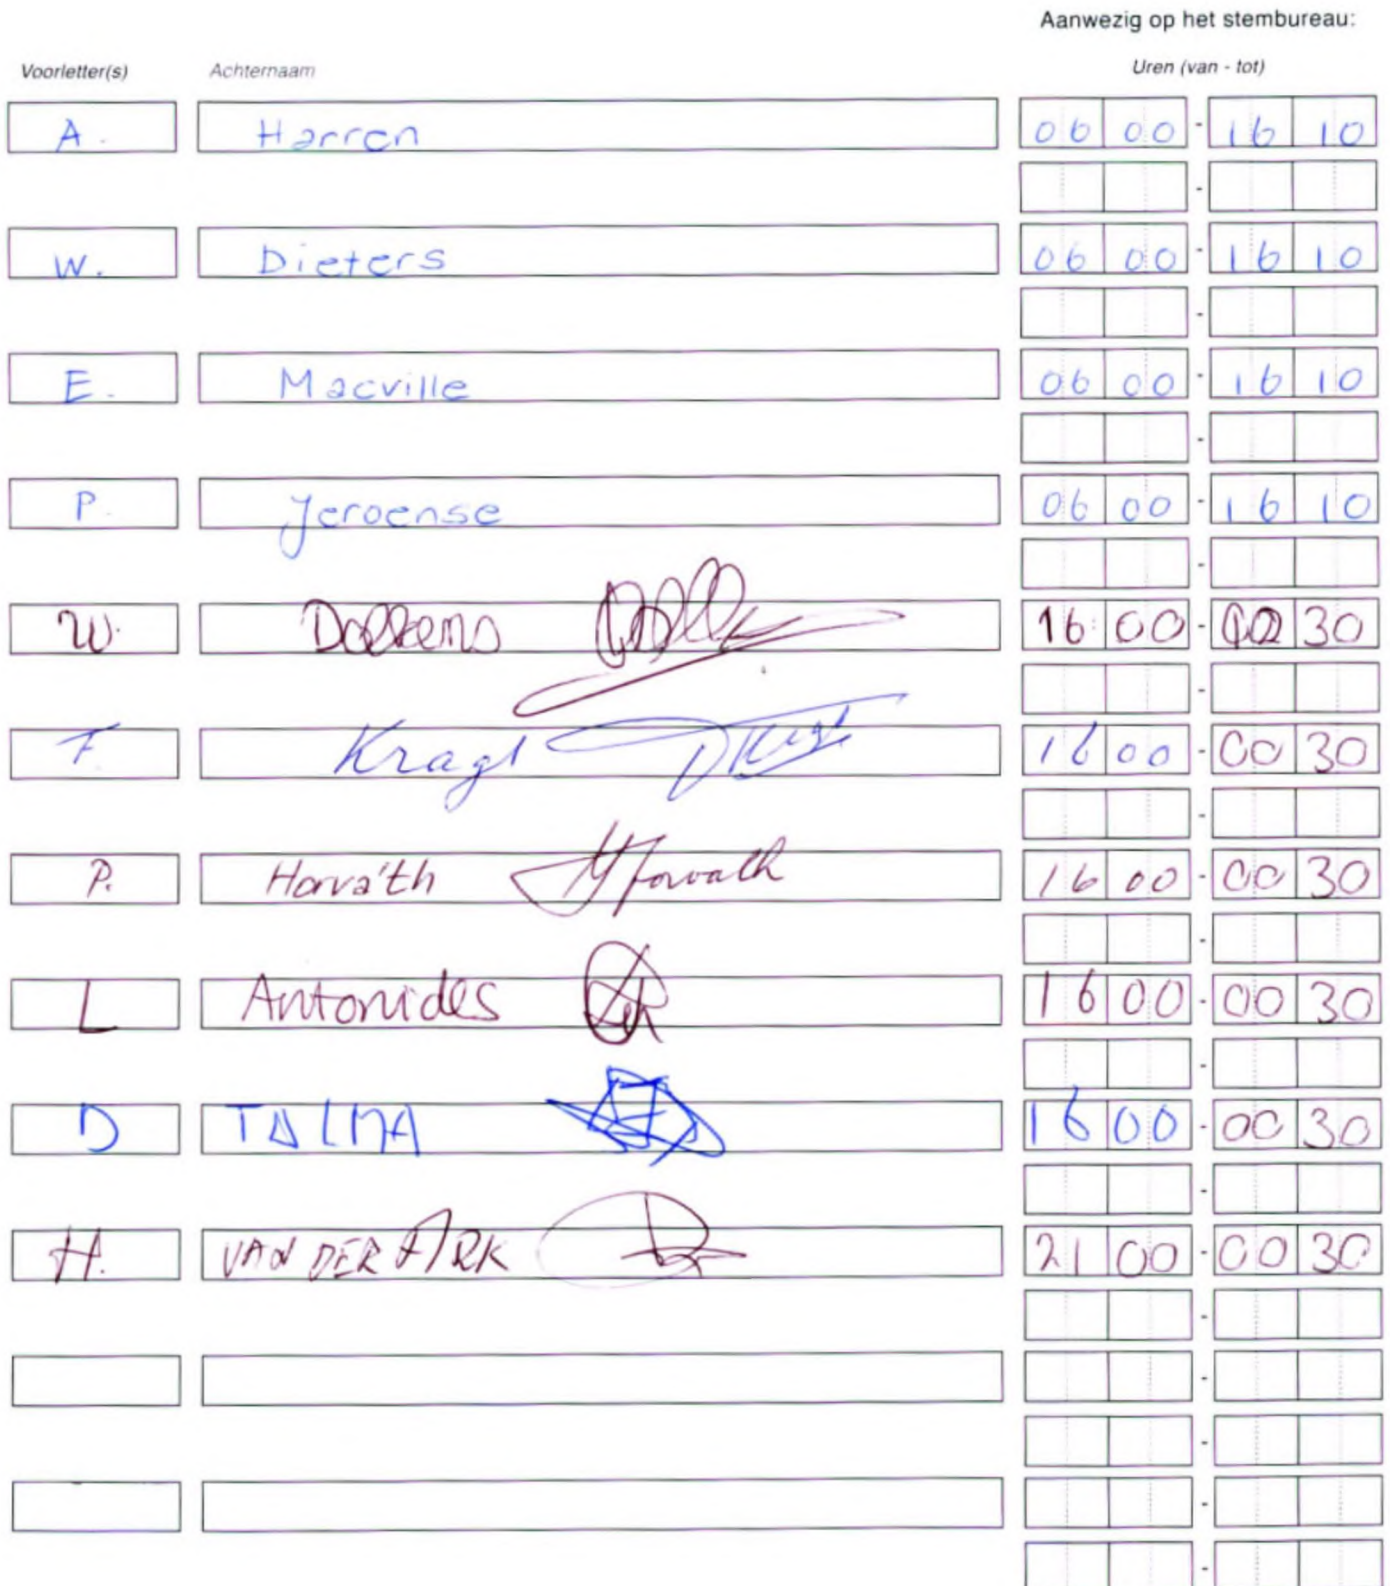 Aanwezig op het stembureau:
Voorletter(s) Achternaam Uren (van - tot)
A. Harren 06 00 - 16 10
-
W. Dieters 06 00 - 16 10
-
E. Macville 06 00 - 16 10
-
P. Jeroense 06 00 - 16 10
-
W. 16 00 - 30
-
F. Kragt 16 00 - 00 30
-
P. Horváth Horvath 16 00 - 00 30
-
L Antonides 16 00 - 00 30
-
D TALMA 16 00 - 00 30
-
H. VAN DER ARK 21 00 - 00 30
-
-
-
-
-